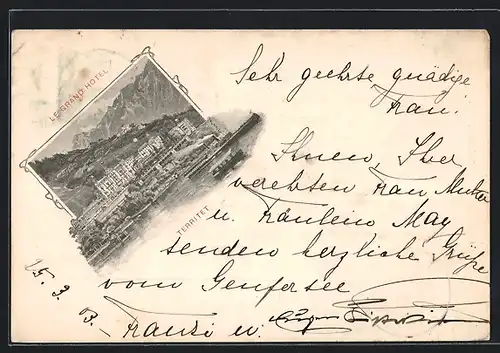 LE GRAND HOTEL
TERRITET
Sehr geehrte gnädige
Frau.
Ihnen, Ihrer
verehrten Frau Mutter
u. Fräulein May
senden herzliche Grüße
vom Genfersee
Franzi u. Eugen
15. 3. 03.